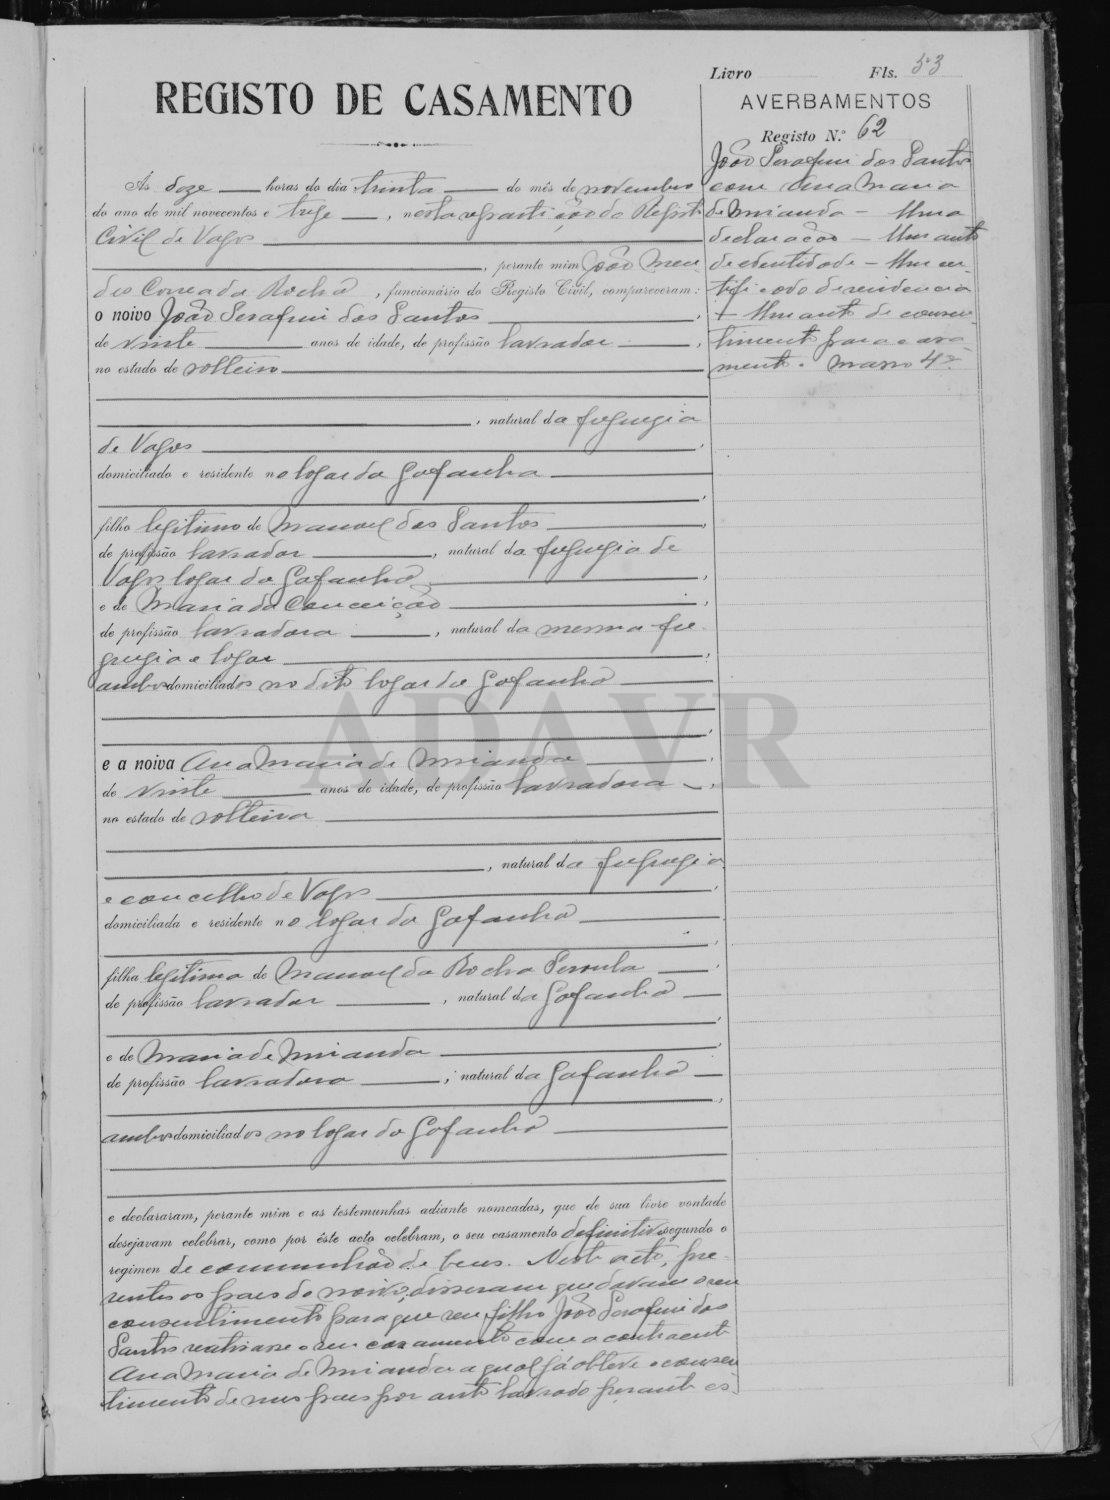 Livro Fls. 53
REGISTO DE CASAMENTO
AVERBAMENTOS
Registo N.º 62
João Serafim dos Santos
com Ana Maria
de Miranda — Uma
declaração — Um auto
de identidade — Um cer-
tificado de residencia
+ Um auto de consen-
timento para casa-
mento. Maço 4º.
Ás doze horas do dia trinta do mês de novembro
do ano de mil novecentos e treze, nesta repartição do Registo
Civil de Vagos
, perante mim João Men-
des Correa da Rocha, funcionário do Registo Civil, compareceram:
o noivo João Serafim dos Santos,
de vinte anos de idade, de profissão lavrador,
no estado de solteiro
, natural da freguezia
de Vagos,
domiciliado e residente no logar da Gafanha,
filho legitimo de Manoel dos Santos,
de profissão lavrador, natural da freguezia de
Vagos logar da Gafanha,
e de Maria da Conceição,
de profissão lavradora, natural da mesma fre-
guezia e logar,
ambos domiciliados no dito logar da Gafanha
ADAVR
e a noiva Ana Maria de Miranda,
de vinte anos de idade, de profissão lavradora,
no estado de solteira
, natural da freguezia
e concelho de Vagos,
domiciliada e residente no logar da Gafanha,
filha legitima de Manoel da Rocha,
de profissão lavrador, natural da Gafanha,
e de Maria de Miranda,
de profissão lavradora, natural da Gafanha,
ambos domiciliados no logar da Gafanha
e declararam, perante mim e as testemunhas adiante nomeadas, que de sua livre vontade
desejavam celebrar, como por êste acto celebram, o seu casamento definitivo segundo o
regimen de communhão de bens. Neste acto, pre-
sentes os paes do noivo, disseram que davam o seu
consentimento para que seu filho João Serafim dos
Santos realisasse o seu casamento com a contraente
Ana Maria de Miranda a qual já obteve o consen-
timento de seus paes por auto lavrado perante es-